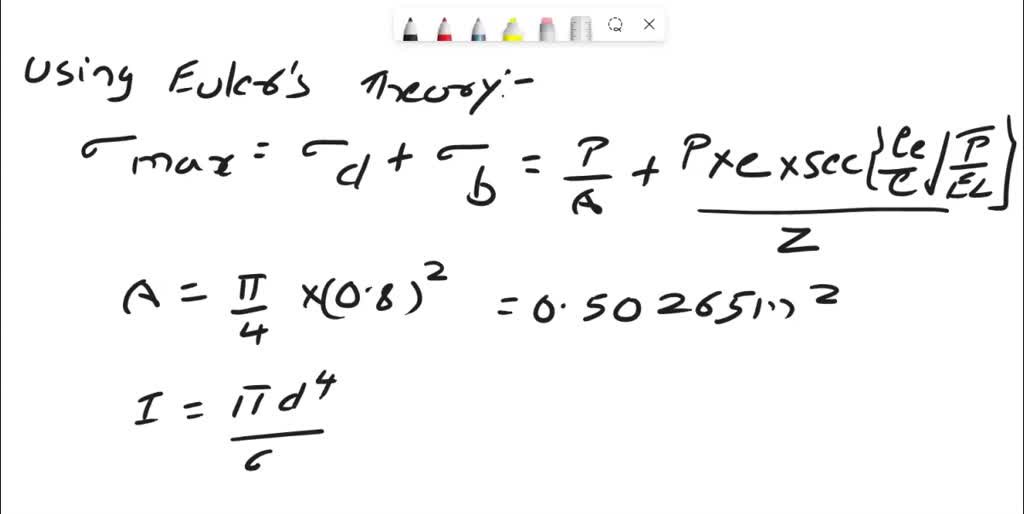 Using Euler's Theory:-
σmax = σd + σb = P/A + P×e×sec{Le/C √P/EL}/Z
A = π/4 ×(0.8)² = 0.50265in²
I = πd⁴/6